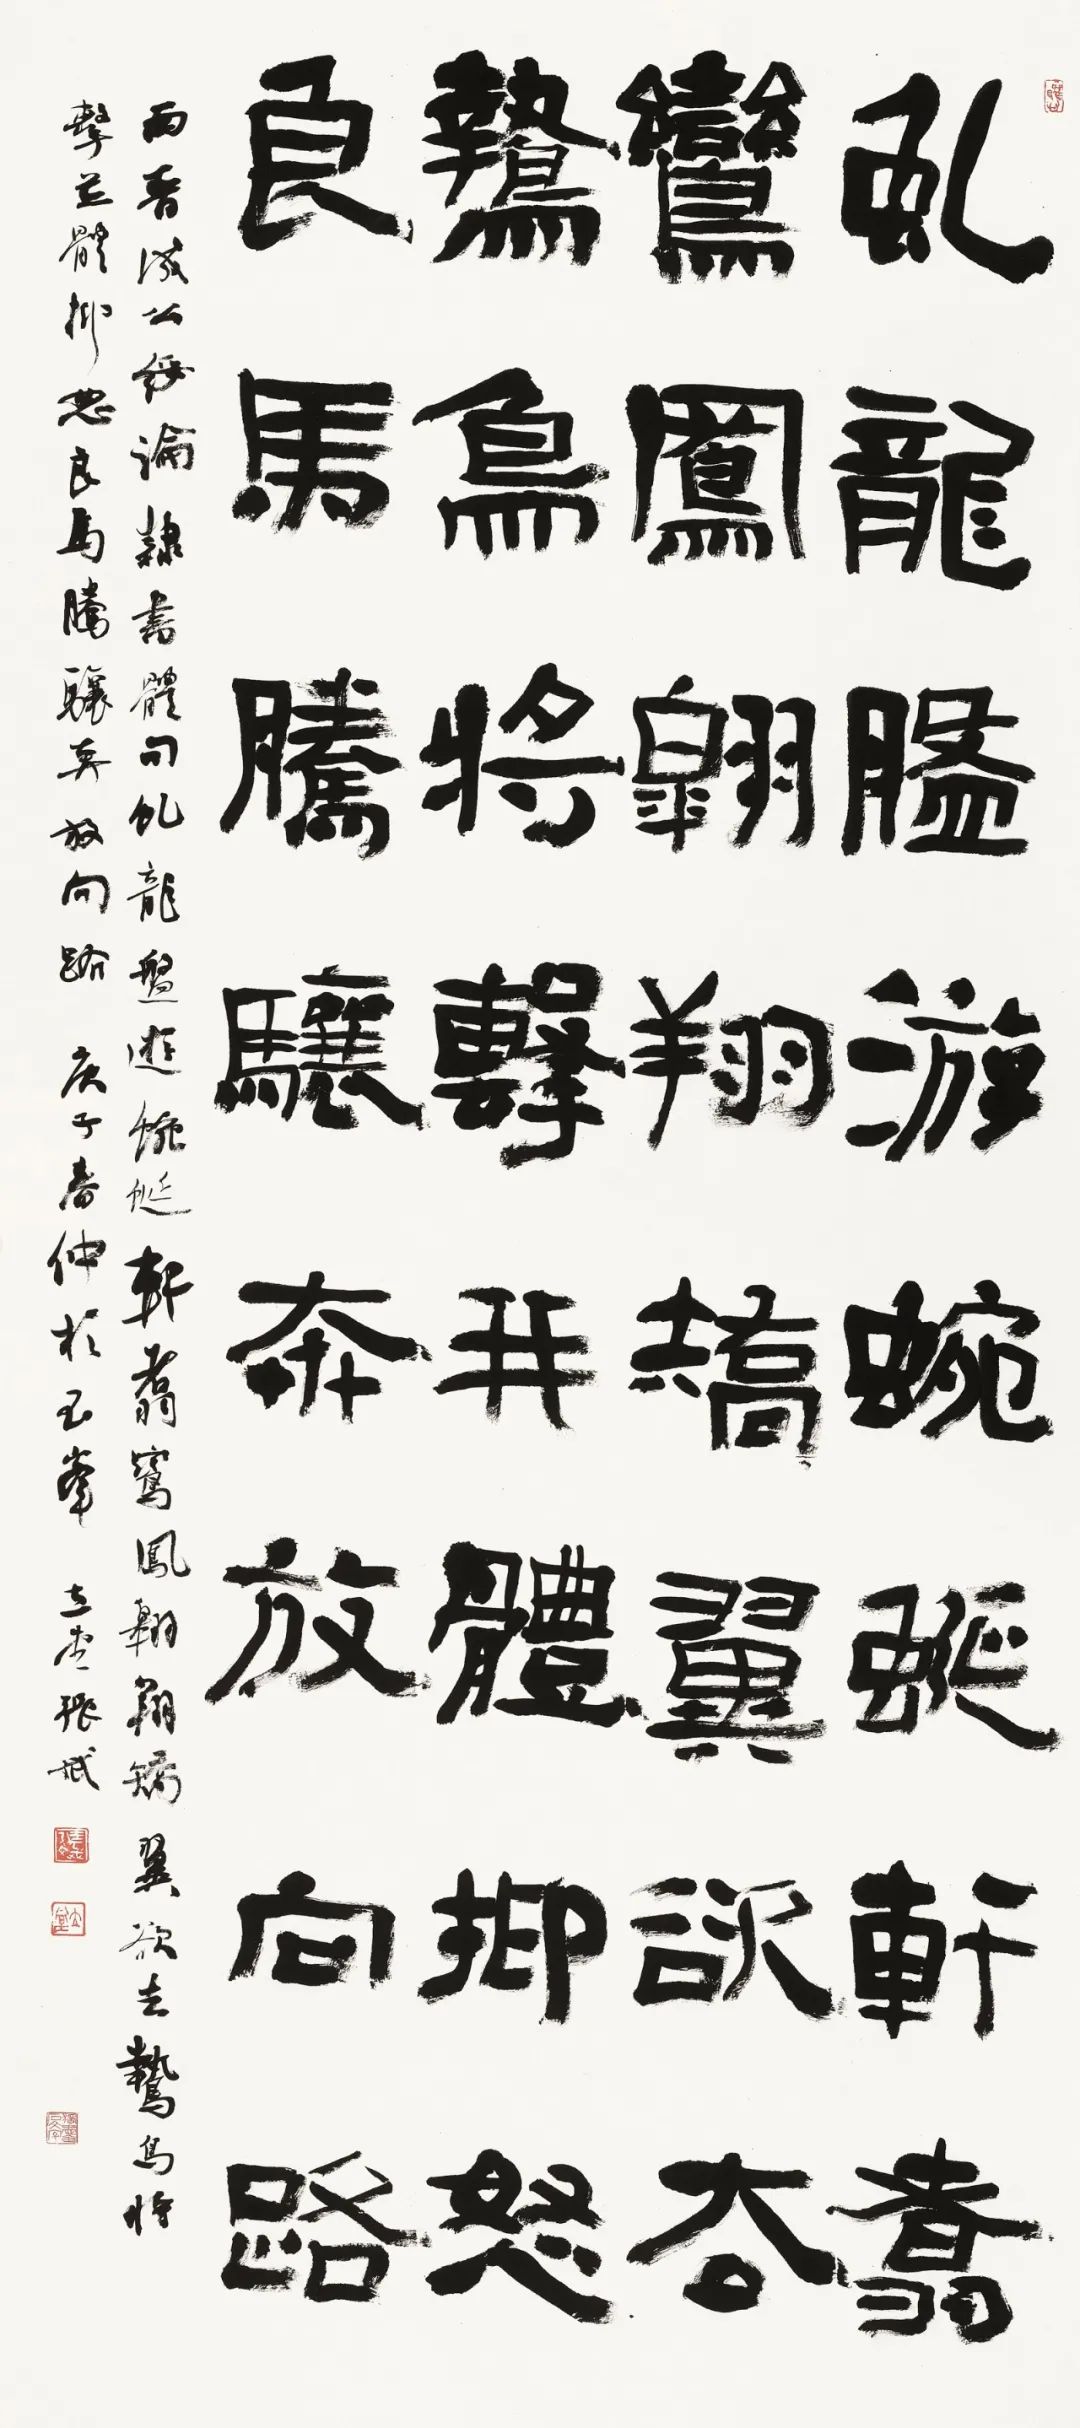 虬龍盤游蜿蜒軒翥
鸞鳳翱翔矯翼欲去
鷙鳥將擊并體抑怒
良馬騰驤奔放向路
西晋成公綏論隸書體句虬龍盤遊蜿蜒軒翥鸞鳳翱翔矯翼欲去鷙鳥將
擊並體抑怒良馬騰驤奔放向路 庚子春仲於玉峯 立堂張斌